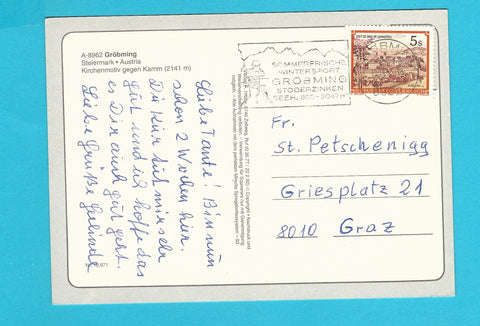 A-8962 Gröbming
Steiermark • Austria
Kirchenmotiv gegen Kamm (2141 m)
Liebe Tante! Bin nun
schon 2 Wochen hier.
Die Kur tut mir sehr
gut und ich hoffe das
es Dir auch gut geht.
Liebe Grüße
SOMMERFRISCHE
WINTERSPORT
GRÖBMING
STODERZINKEN
SEEH. 800-2047m
5s
Fr.
St. Petschenigg
Griesplatz 21
8010 Graz